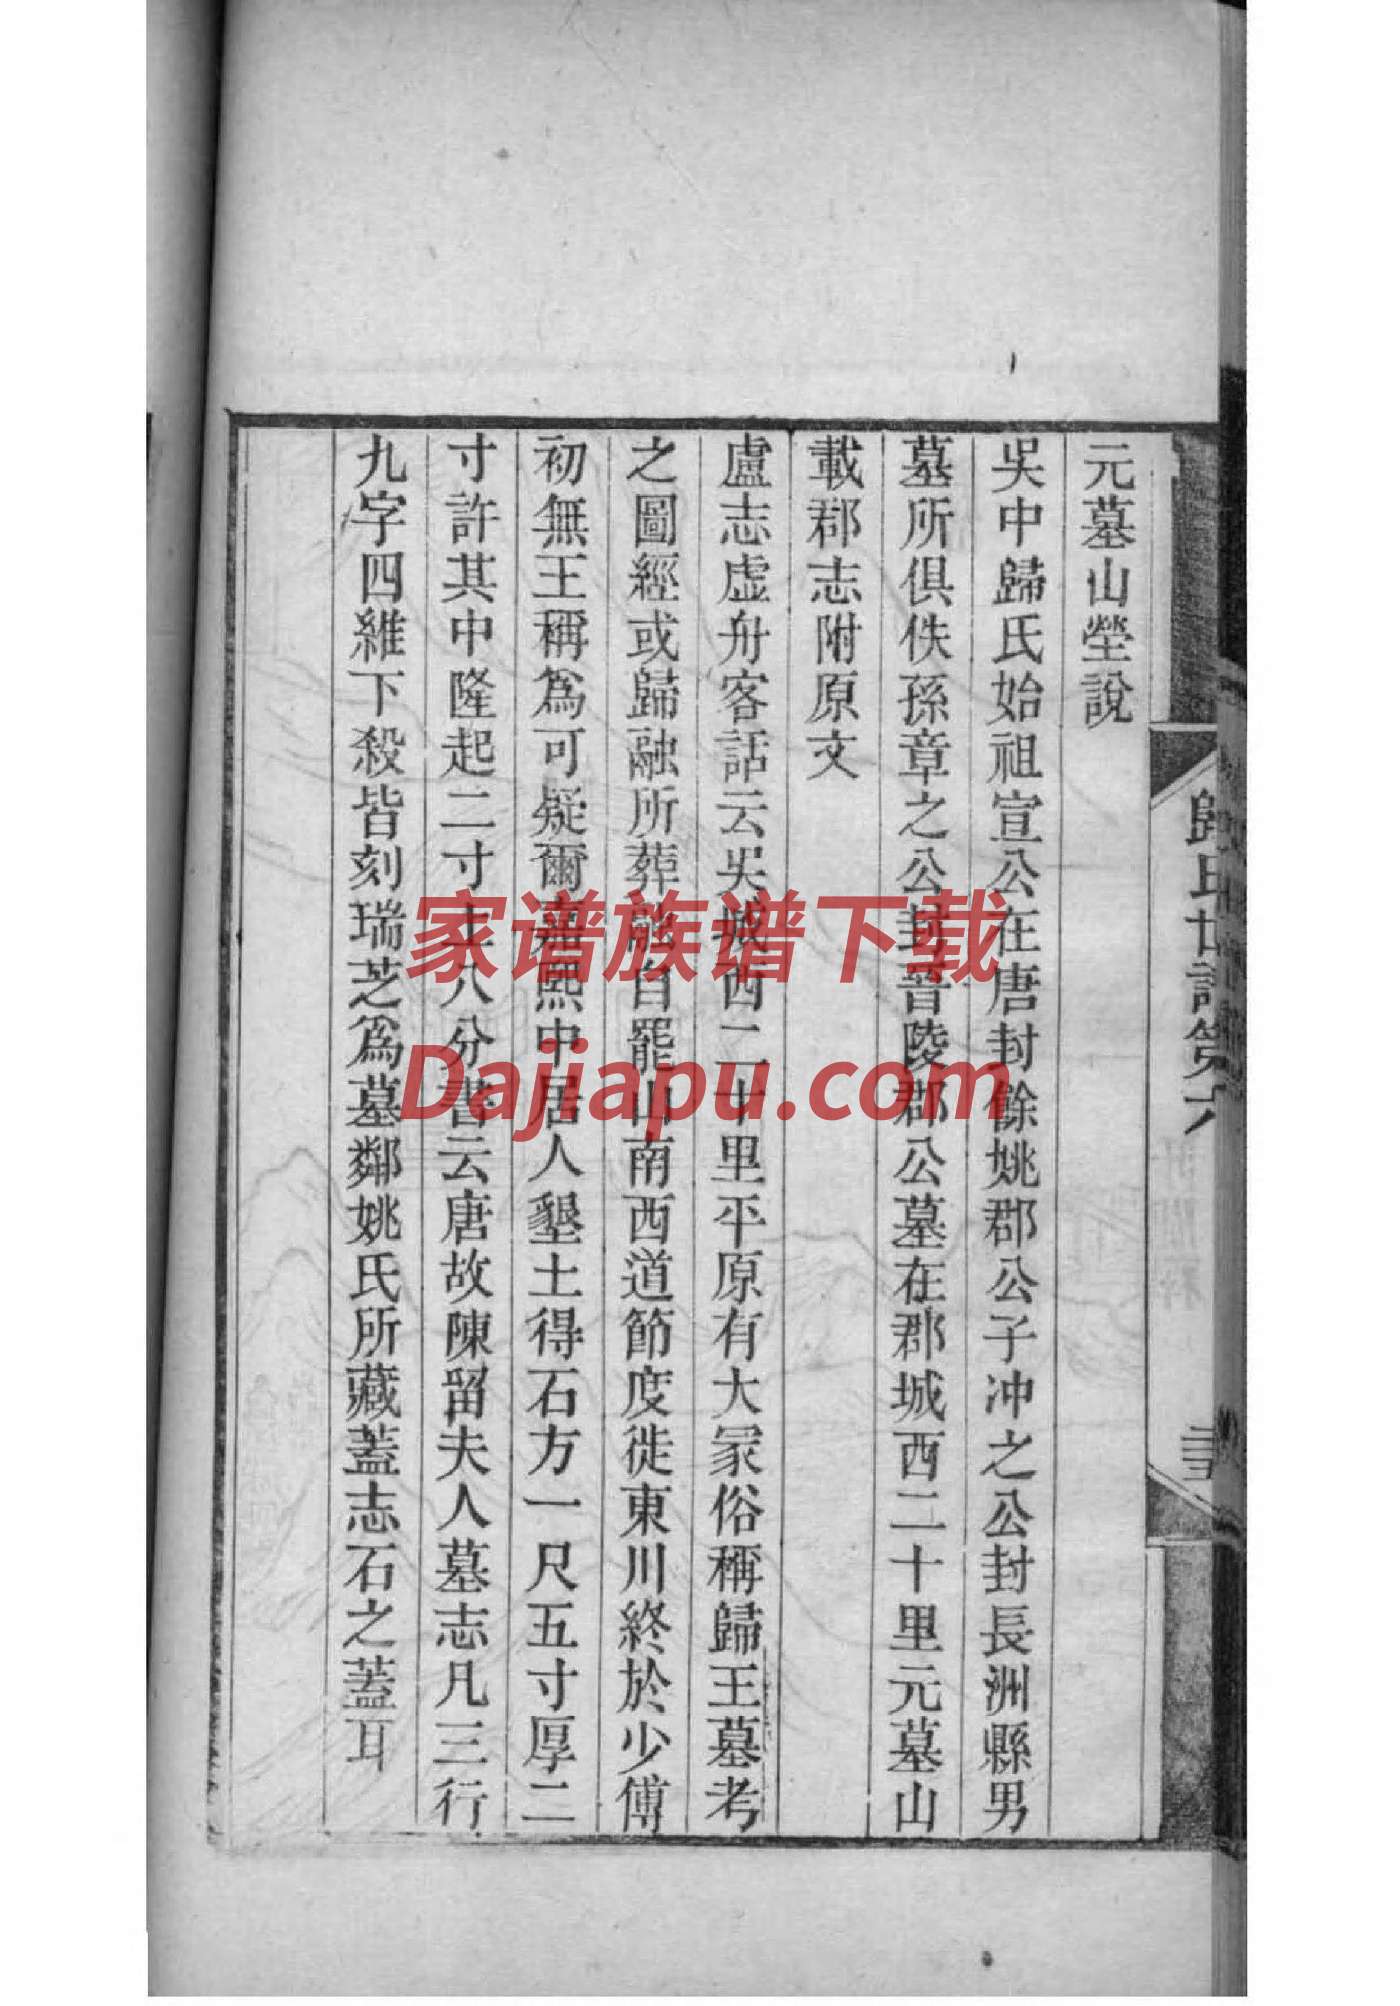 元墓山塋說
吳中歸氏始祖宣公在唐封餘姚郡公子冲之公封長洲縣男
墓所俱佚孫章之公封晉陵郡公墓在郡城西二十里元墓山
載郡志附原文
盧志虛舟客話云吳城西二十里平原有大冢俗稱歸王墓考
之圖經或歸融所葬融自罷山南西道節度徙東川終於少傅
初無王稱爲可疑爾嘉熙中居人墾土得石方一尺五寸厚二
寸許其中隆起二寸上八分書云唐故陳留夫人墓志凡三行
九字四維下殺皆刻瑞芝爲墓鄰姚氏所藏蓋志石之蓋耳
歸氏世譜第六
家谱族谱下载
Dajiapu.com